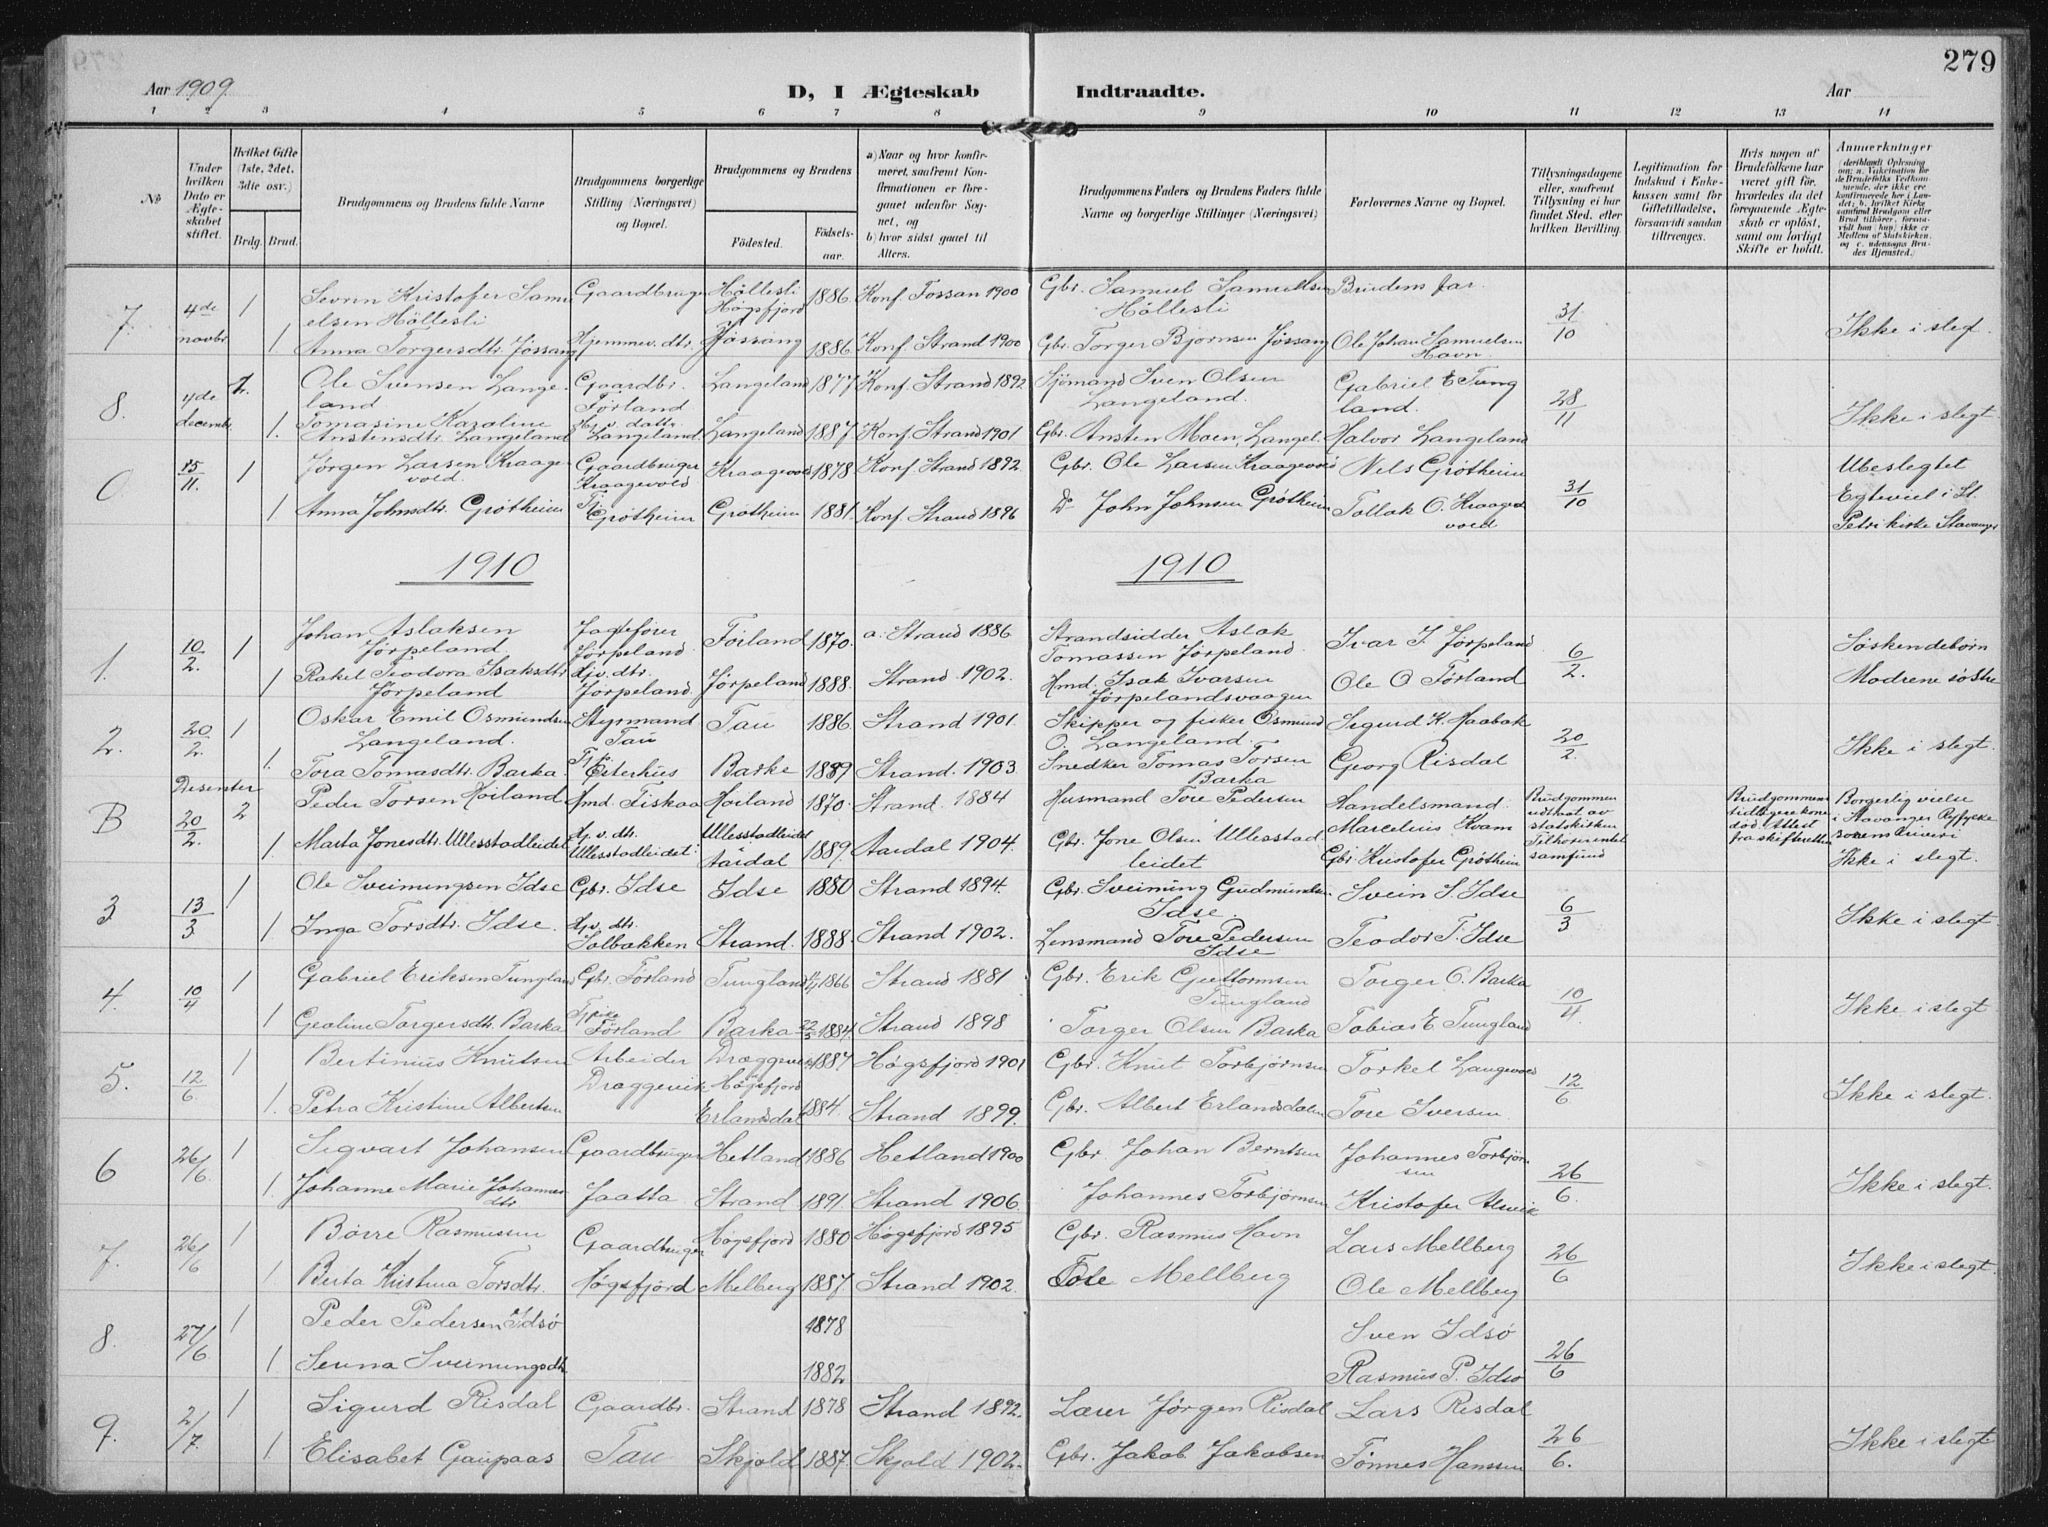 279
Aar 1909.
D, I Ægteskab
Indtraadte.
Aar
1 2 3 4 5 6 7 8 9 10 11 12 13 14
No
Under hvilken Dato er Ægteskabet stiftet.
Hvilket Gifte (1ste, 2det, 3die osv.)
Brdg. Brud.
Brudgommens og Brudens fulde Navne
Brudgommens borgerlige Stilling (Næringsvei) og Bopæl.
Brudgommens og Brudens
Fødested. Fødselsaar.
a) Naar og hvor konfirmeret, saafremt Konfirmationen er foregaaet udenfor Sognet, og
b) hvor sidst gaaet til Alters.
Brudgommens Faders og Brudens Faders fulde Navne og borgerlige Stillinger (Næringsvei)
Forlovernes Navne og Bopæl.
Tillysningsdagene eller, saafremt Tillysning ei har fundet Sted, efter hvilken Bevilling.
Legitimation for Indskud i Enkekassen samt for Giftetilladelse, forsaavidt saadan tiltrænges.
Hvis nogen af Brudefolkene har været gift før, hvorledes da det foregaaende Ægteskab er opløst, samt om lovligt Skifte er holdt.
Anmærkninger
(deriblandt Oplysning om: a. Vakcination for de Brudefolks Vedkommende, der ikke ere konfirmerede her i Landet; b. hvilket Kirkesamfund Brudgom eller Brud tilhører, forsaavidt han (hun) ikke er Medlem af Statskirken, og c. udensogns Brudes Hjemsted.)
7. 4de novbr 1 Sevrin Kristofer Samuelsen Höllesli Gaardbruger Höllesli Högsfjord 1886. Konf. Fossan 1900 Gbr. Samuel Samuelsen Höllesli Brudens far. 31/10 Ikke i slegt.
1 Anna Torgersdtr. Jössang Hjemmev. dtr. Jössang 1886. Konf. Strand 1900 Gbr. Torger Bjornsen Jössang Ole Johan Samuelsen Havn.
8. 4de decembr Ole Svensen Langeland Gaardbr. Förland Langeland 1877 Konf. Strand 1892 Sjömand Sven Olsen Langeland. Gabriel E Tungland. 28/11 Ikke i slegt
1. Tomasine Karoline Anstensdtr. Langeland Hj. v. datter Langeland. Langeland 1887. Konf. Strand 1901 Gbr. Ansten Moen, Langel. Halvor Langeland
15/11. 1 Jörgen Larsen Kraagevold. Gaardbruger Kraagevold Kraagevold 1878 Konf. Strand 1892. Gbr. Ole Larsen Kraagevold Nels Grötheim 31/10 Ubeslegtet
1 Anna Johnsdtr. Grötheim Grötheim Grötheim 1881. Konf. Strand 1896 John Johnsen Grötheim Tollak O. Kraagevold Egteviel i St. Petri kirke Stavanger
1910
1910
1. 10/2. 1 Johan Aslaksen Jörpeland Jagtefører Jörpeland. Förland 1870. a. Strand 1886 Strandsidder Aslak Tomassen Jörpeland. Ivar I. Jörpeland 6/2. Söskendebörn
1 Rakel Teodora Isaksdtr. Jörpeland Hjv. dtr. Jörpeland. Jörpeland 1888. Strand 1902. Hmd. Isak Ivarsen Jörpelandsvaagen Ole O Förland Mødrene søstre
2. 20/2. 1 Oskar Emil Osmundsen Langeland. Styrmand Tau Tau 1886. Strand 1901. Skipper og fisker Osmund O. Langeland. Sigurd K. Haabak 20/2. Ikke i slegt.
1. Tora Tomasdtr. Barka. Esterhus Barke 1889 Strand. 1903. Snedker Tomas Torsen Barka Georg Risdal
B Desenter 20/2. 2 Peder Torsen Höiland Hmd. Fiskaa Höiland 1870. Strand. 1884 Husmand Tore Pedersen Handelsmand. Marcelius Kvam Brudgommen udtraadt av statskirken Tilhører intet samfund Brudgommens tidligere kone död. Attest fra skifteretten Borgerlig vielse i Stavanger
1. Marta Jonesdtr. Ullesstadleidet Hj. v. dtr. Ullesstadleidet. Ullesstadleidet Aardal 1889. Aardal 1904. Gbr. Jone Olsen Ullesstadleidet Gbr. Kristofer Grötheim Ikke i slegt.
3 13/3 1 Ole Sveinungsen Idse Gbr. Idse Idse 1880 Strand 1894. Gbr. Sveinung Gudmundsen Idse. Svein S. Idse 6/3 Ikke i slegt
1 Inga Torsdtr. Idse. Hjv. dtr. Solbakken Strand. 1888. Strand 1902. Lensmand Tore Pedersen Idse Teodor T. Idse
4. 10/4 1 Gabriel Eriksen Tungland Gbr. Förland Tungland 1866 Strand 1881 Gbr. Erik Guttormsen Tungland Torger O. Barka 10/4 Ikke i slegt
1 Geoline Torgersdtr. Barka Tjpike Förland Barka 22/3 1884. Strand 1898 Torger Olsen Barka Tobias E Tungland
5. 12/6. 1 Bertinius Knutsen Arbeider Dræggevik Dræggevik Högsfjord 1887 Høgsfjord 1901 Gbr. Knut Torbjørnsen Torkel Langevold 12/6 Ikke i slegt.
1. Petra Kristine Albertsen Erlandsdal 1884. Strand 1899. Gbr. Albert Erlandsdalen Tore Iversen
6 26/6. 1 Sigvart Johansen Gaardbruger Hetland 1886 Hetland 1900 Gbr. Johan Berntsen Johannes Torbjørnsen 26/6. Ikke i slegt.
1. Johanne Marie Johannesdtr Jaatta Strand 1891. Strand 1906. Johannes Torbjørnsen Kristofer Alsvik
7. 26/6 1 Børre Rasmussen Gaardbruger Høgsfjord Høgsfjord 1880 Høgsfjord 1895 Gbr. Rasmus Havn Lars Mellberg 26/6 Ikke i slegt.
1 Berta Kristina Torsdtr. Melberg 1887. Strand 1902. Tore Mellberg Ole Mellberg
8. 27/6 1 Peder Pedersen Idsø 1878 Sven Idsø 26/6
1 Serina Sveinungsdtr. 1882 Rasmus P. Idsø
9. 2/7. 1 Sigurd Risdal Gaardbr. Tau Strand 1878 Strand 1892. Lærer Jørgen Risdal Lars Risdal 26/6. Ikke i slegt
1. Elisabet Gaupaas Skjold 1887. Skjold 1902. Gbr. Jakob Jakobsen Tönnes Hanssen